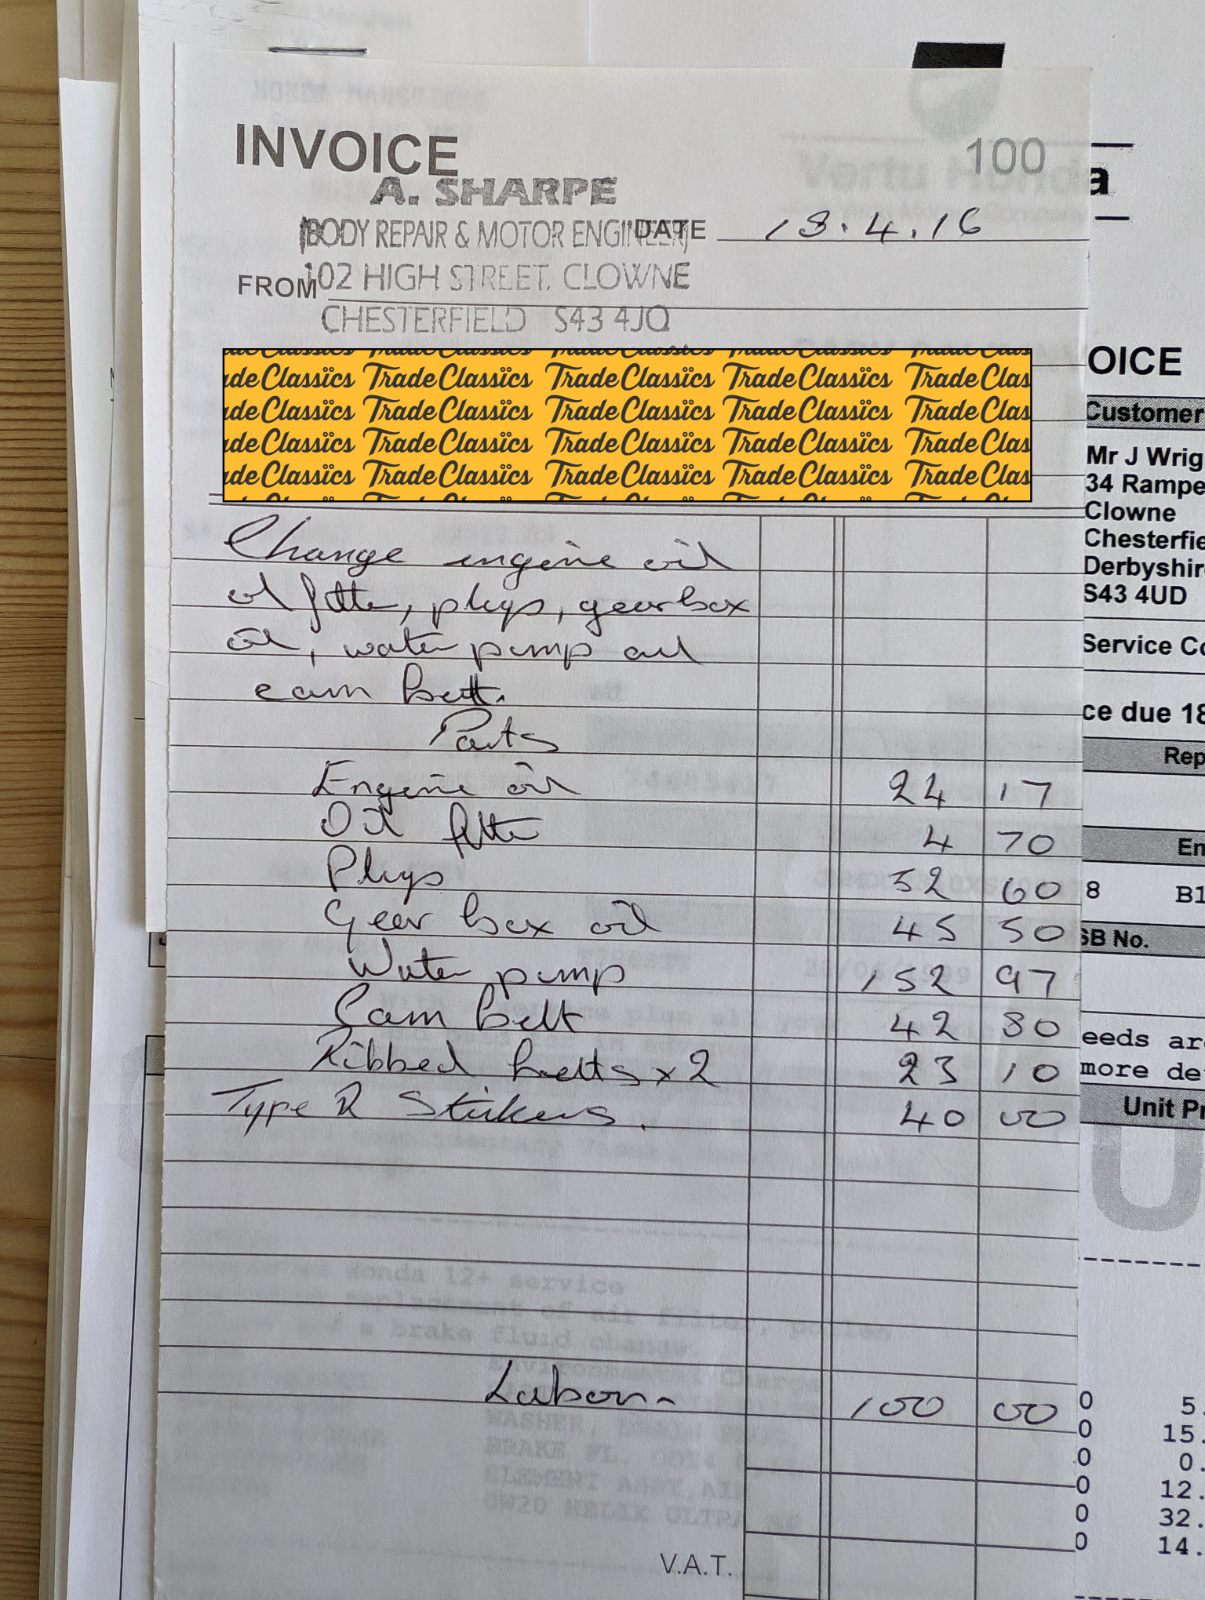 INVOICE
100
A. SHARPE
BODY REPAIR & MOTOR ENGINEER
DATE 18.4.16
FROM 102 HIGH STREET, CLOWNE
CHESTERFIELD S43 4JQ
Trade Classics
Change engine oil
oil filter, plugs, gearbox
oil, water pump and
cam belt.
Parts
Engine oil 24 17
Oil filter 4 70
Plugs 52 60
Gear box oil 45 50
Water pump 152 97
Cam Belt 42 80
Ribbed belts x 2 23 10
Type R Stickers. 40 00
Labour 100 00
V.A.T.
Vertu Honda
OICE
Customer
Mr J Wrig
34 Rampe
Clowne
Chesterfie
Derbyshir
S43 4UD
Service Co
ce due 18
Rep
En
8 B1
SB No.
eeds ar
more de
Unit Pr
0 5.
0 15.
0 0.
0 12.
0 32.
0 14.